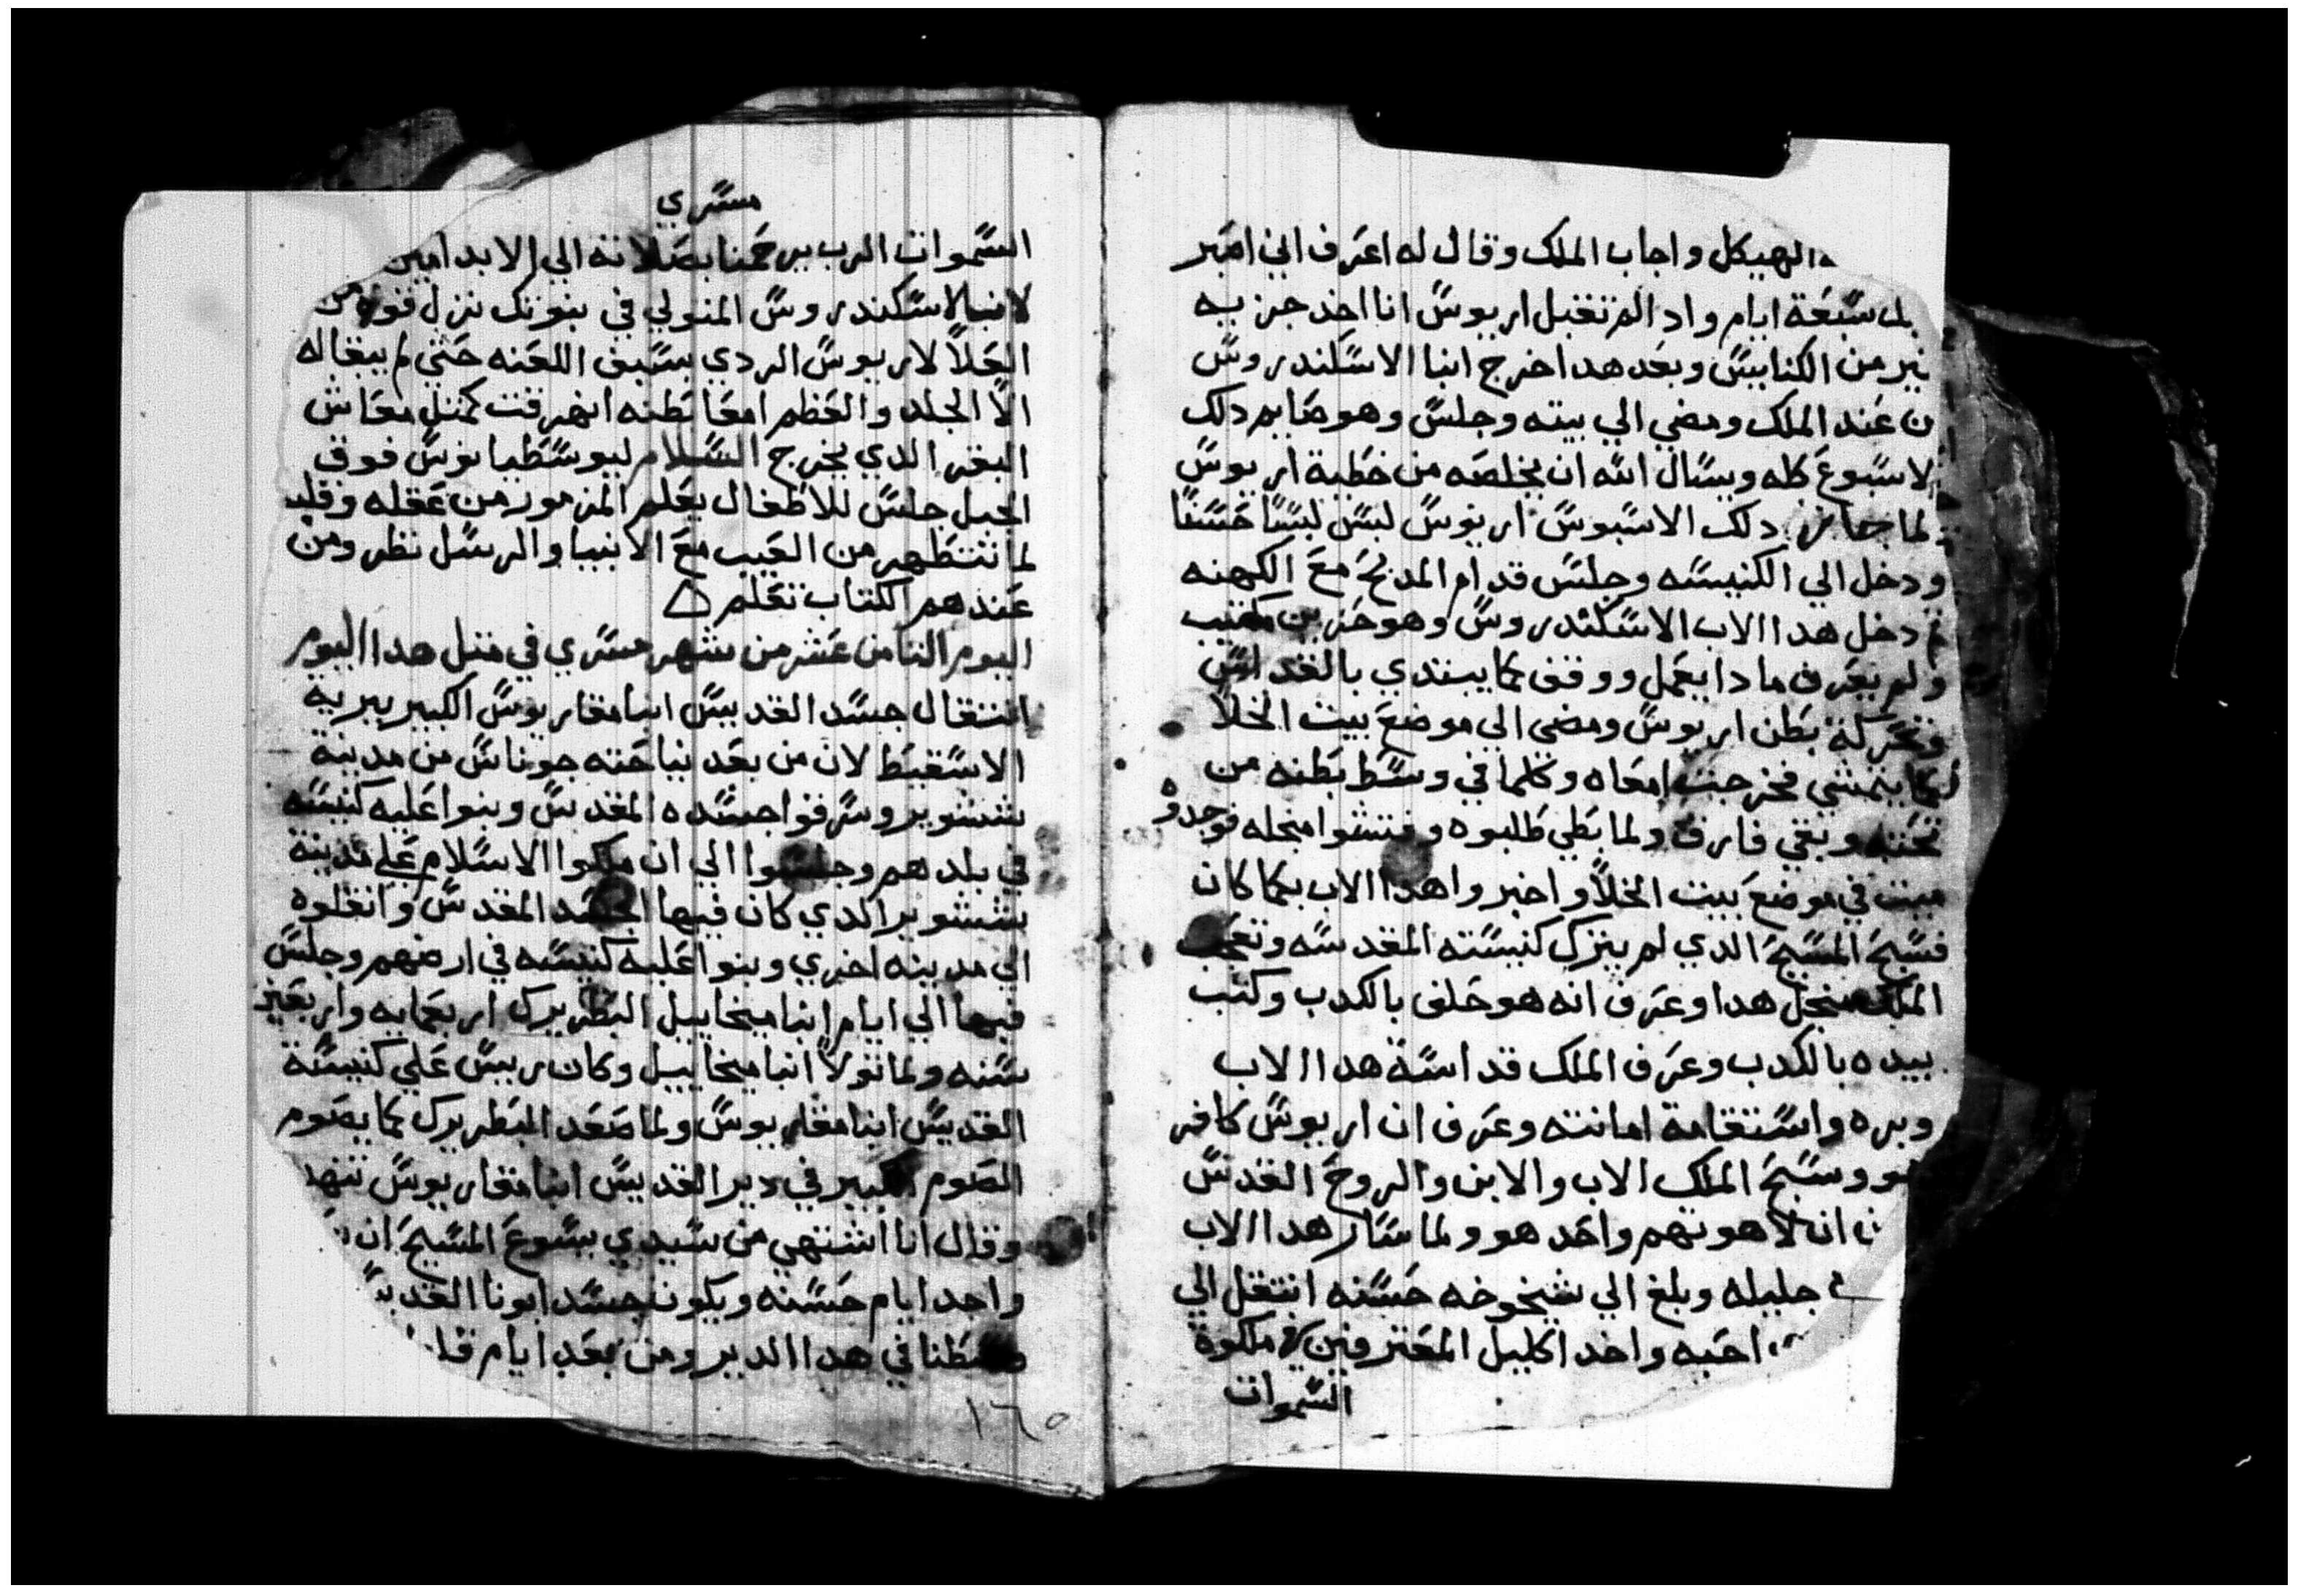 الهيكل واجاب الملك وقال له اعرف اني اصبر
سبعة ايام واد الم تقبل اريوس انا اخد حزبه
من الكنايس وبعد هدا اخرج انبا الاسكندروس
ن عند الملك ومضي الي بيته وجلس وهو صايم دلك
لاسبوع كله ويسال الله ان يخلصه من خطية اريوس
لما جاز دلك الاسبوس اريوس لبس لبسا حسنا
ودخل الي الكنيسه وجلس قدام المدبح مع الكهنه
دخل هدا الاب الاسكندروس وهو حزين مكتيب
ولم يعرف مادا يعمل ووقف كما يبتدي بالقداس
وتحركة بطن اريوس ومضي الي موضع بيت الخلا
لكما يتمشي فخرجت امعاه وكلما في وسط بطنه من
تحته وبقي فارق ولما بطي طلبوه وفتشوا منجله فوجدوه
ميت في موضع بيت الخلا واخبروا هدا الاب بكما كان
فسبح المسيح الدي لم يترك كنيسته المقدسه وتعجب
الملك منجل هدا وعرف انه هو حلف بالكدب وكتب
بيده بالكدب وعرف الملك قداسة هدا الاب
وبره واستقامة امانته وعرف ان اريوس كافر
هو وسبح الملك الاب والابن والروح القدس
ان لاهوتهم واحد هو ولما سار هدا الاب
جليله وبلغ الي شيخوخه حسنه انتقل الي
احبه واخد اكليل المعترفين في ملكوة
السموات
مسري
السموات الرب يرحمنا بصلاته الي الابد امين
لانبا لاسكندروس المتولي في بنوتك نزل قوة من
العلا لاريوس الردي بسيف اللعنه حتي لم يبقا له
الا الجلد والعظم امعا بطنه انهرقت كمثل معاش
البقر الدي يخرج السلام ليوسطيانوس فوق
الجبل جلس للاطفال يعلم المزمور من عقله وقلبه
لما تتطهر من العيب مع الانبيا والرسل نظر ومن
عندهم الكتاب تعلم
اليوم الثامن عشر من شهر مسري في مثل هدا اليوم
انتقال جسد القديس انبا مقاريوس الكبير ببرية
الاسقيط لان من بعد نياحته جو ناس من مدينة
شنشوير وسرقوا جسده المقدس وبنوا عليه كنيسه
في بلدهم وجلسوا الي ان ملكوا الاسلام علي مدينة
شنشوير الدي كان فيها الجسد المقدس وانقلوه
الي مدينه اخري وبنوا عليه كنيسه في ارضهم وجلس
فيها الي ايام انبا ميخاييل البطريرك اربعمايه واربعين
سنه ولما تولا انبا ميخاييل وكان رييس علي كنيسة
القديس انبا مقاريوس ولما صعد البطريرك كما يصوم
الصوم الكبير في دير القديس انبا مقاريوس تنهد
وقال انا اشتهي من سيدي يسوع المسيح ان
واحد ايام حسنه ويكون جسد ابونا القديس
وسطنا في هدا الدير ومن بعد ايام
١٦٥